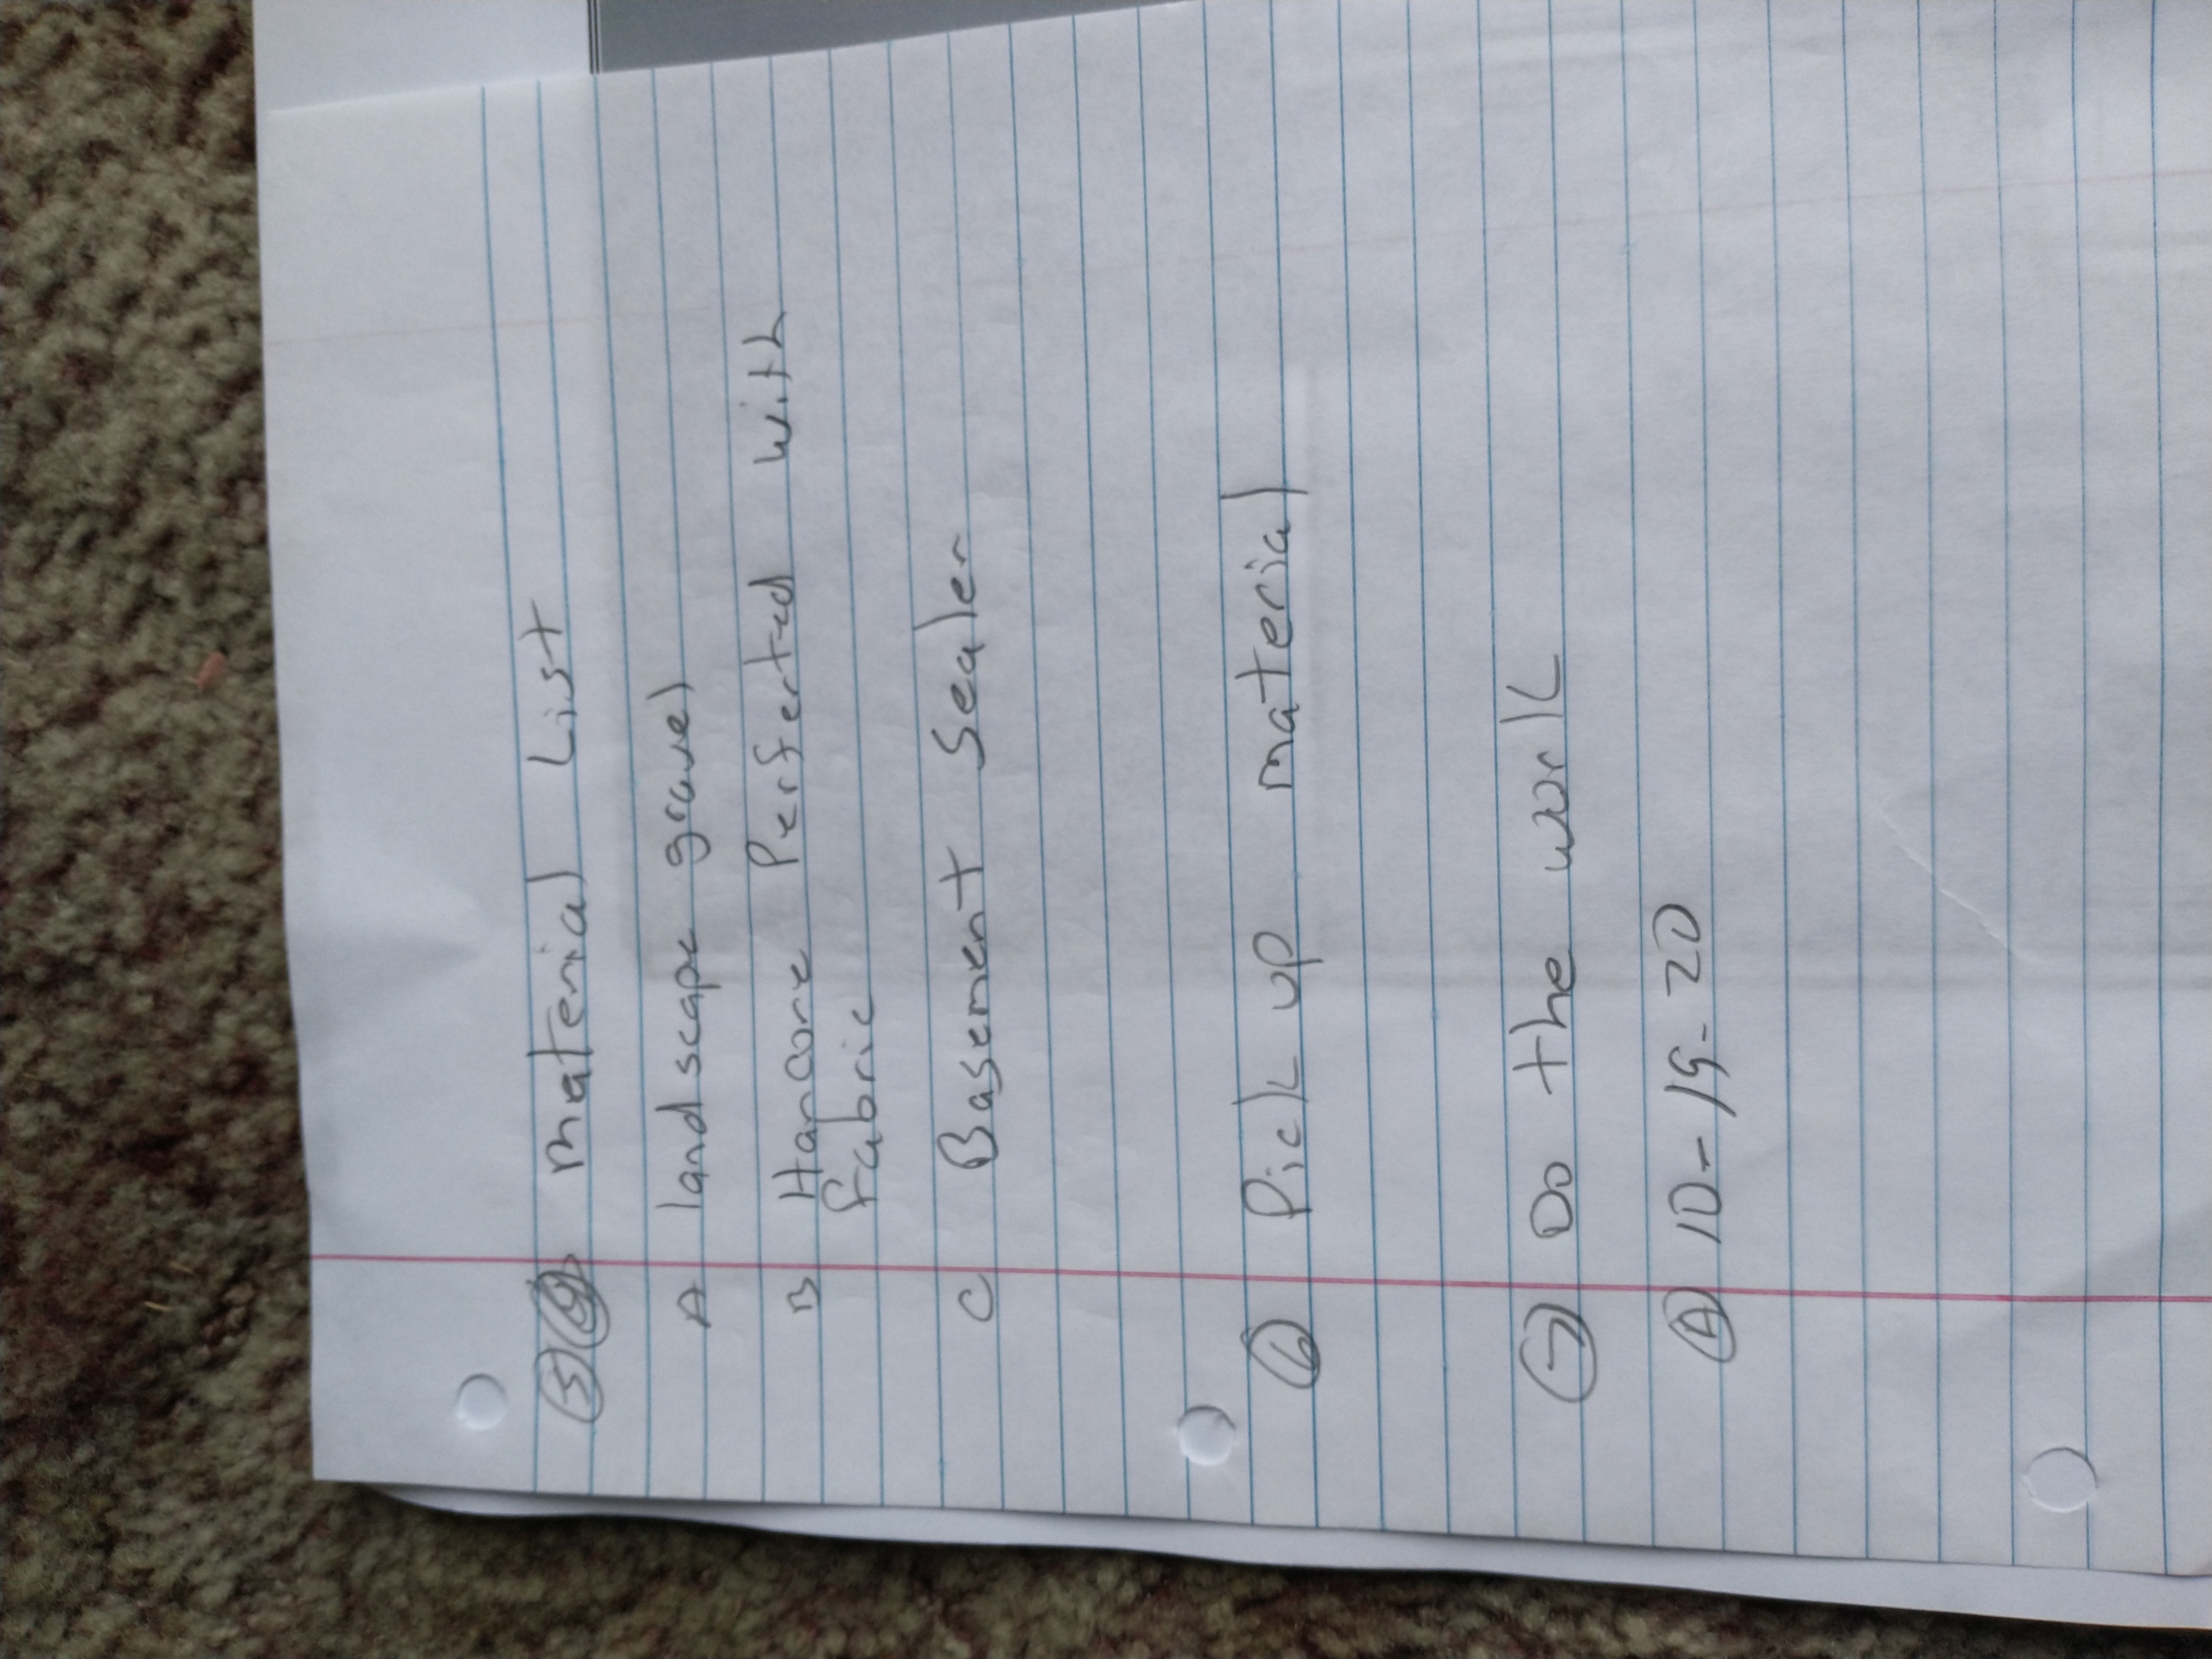 5 material List
A landscape gravel
B Hancore Perferted with
Fabric
C Basement Sealer
6 Pick up material
7 Do the work
A 10-19-20